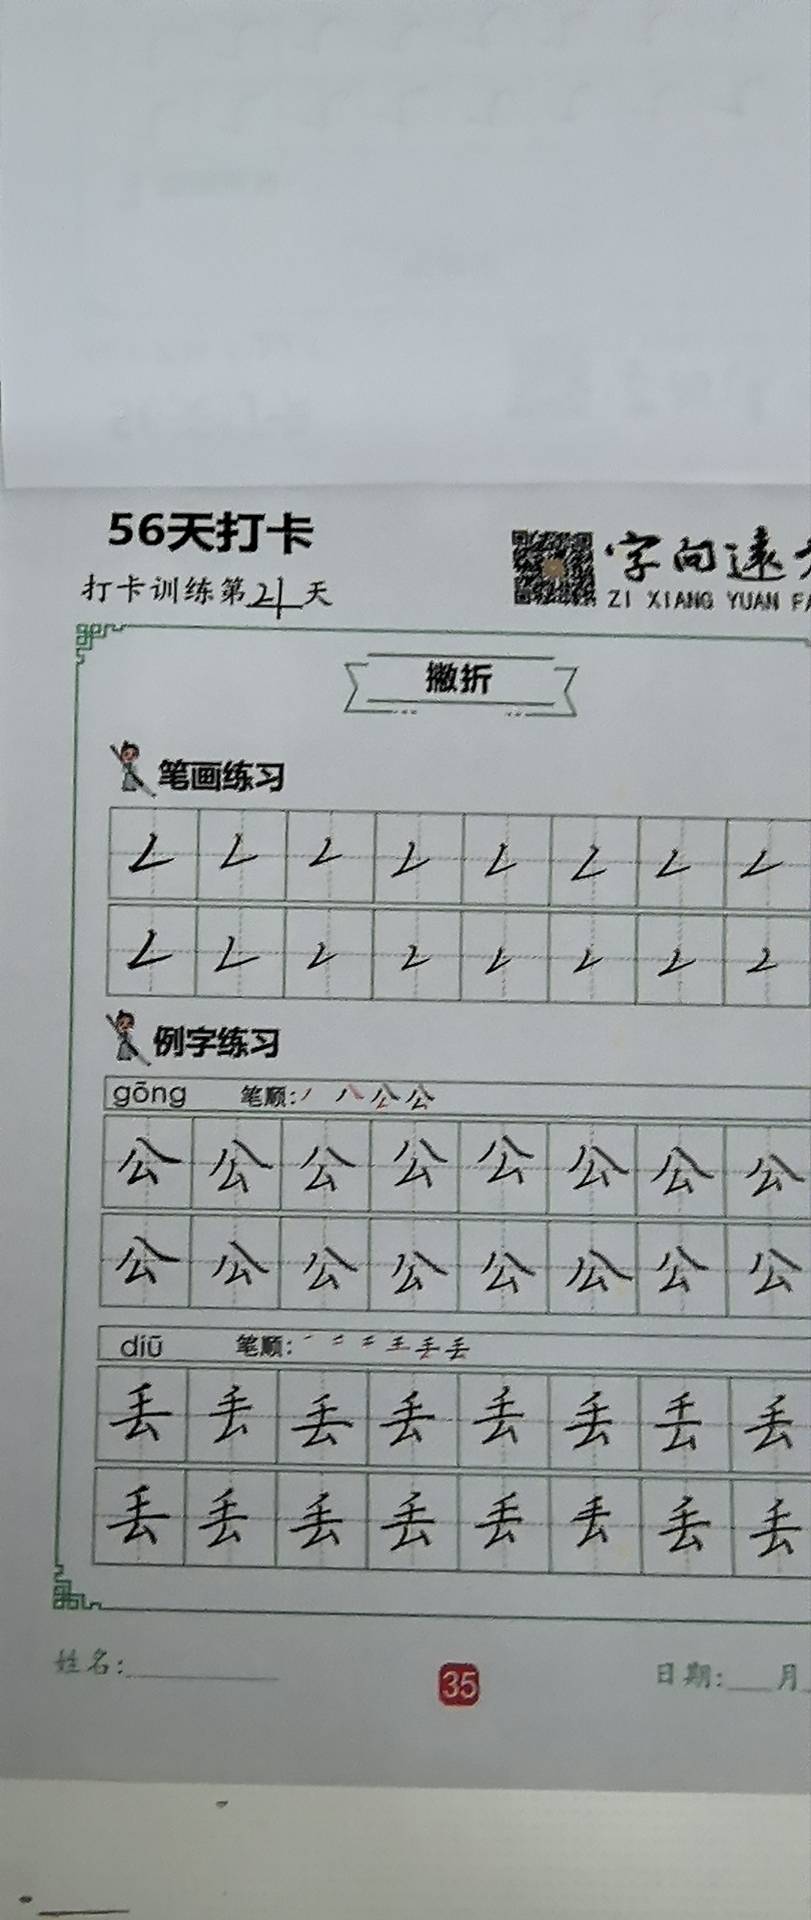 56天打卡
字向远
打卡训练第21天
ZI XIANG YUAN
撇折
笔画练习
例字练习
gōng 笔顺: 丿 八 公 公
公 公 公 公 公 公 公 公
公 公 公 公 公 公 公 公
diū 笔顺:
丢 丢 丢 丢 丢 丢 丢 丢
丢 丢 丢 丢 丢 丢 丢 丢
姓名: 35 日期: 月